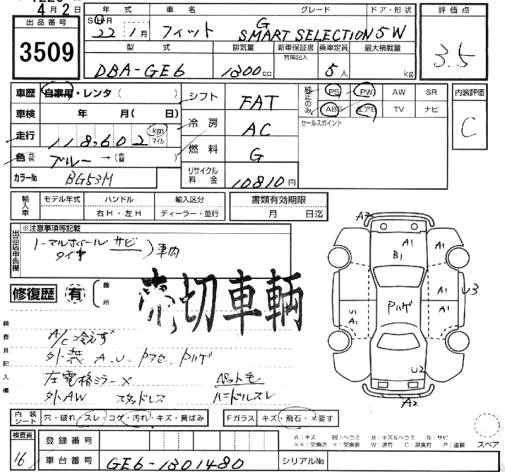 4月2日
出品番号 3509
年式 車名 グレード ドア・形状 評価点
S H R 22年 1月 フィット G SMART SELECTION 5W 3.5
型式 排気量 新車保証書 乗車定員 最大積載量
有開記入
DBA-GE6 1300cc 5人 kg
車歴 自家用・レンタ( ) シフト FAT PS PW AW SR 内装評価
車検 年 月(日) 冷房 AC AB エアB TV ナビ C
セールスポイント
走行 118,602 km マイル
燃料 G
色 ブルー →( )
カラーNo BG53M リサイクル料金 10810円
輸入車 モデル年式 ハンドル 輸入区分 書類有効期限
右H・左H ディーラー・並行 月 日迄
※注意事項等記載
ノーマルホイール サビ
タイヤ )車内
修復歴 有 箇所
売切車輌
検査員記入欄
A/C冷えず
外装 A.U.
左電格ミラー× ペット毛
外AW スタッドレス ハンドルスレ
A2 A1 A1 B1 A1 U3 U1 A1 A1 U2 A2
内装シート 穴・破れ・スレ・コゲ・汚れ・キズ・黄ばみ Fガラス キズ・飛石・×要す
スペア
検査員 16
登録番号
車台番号 GE6-1301480 シリアルNo